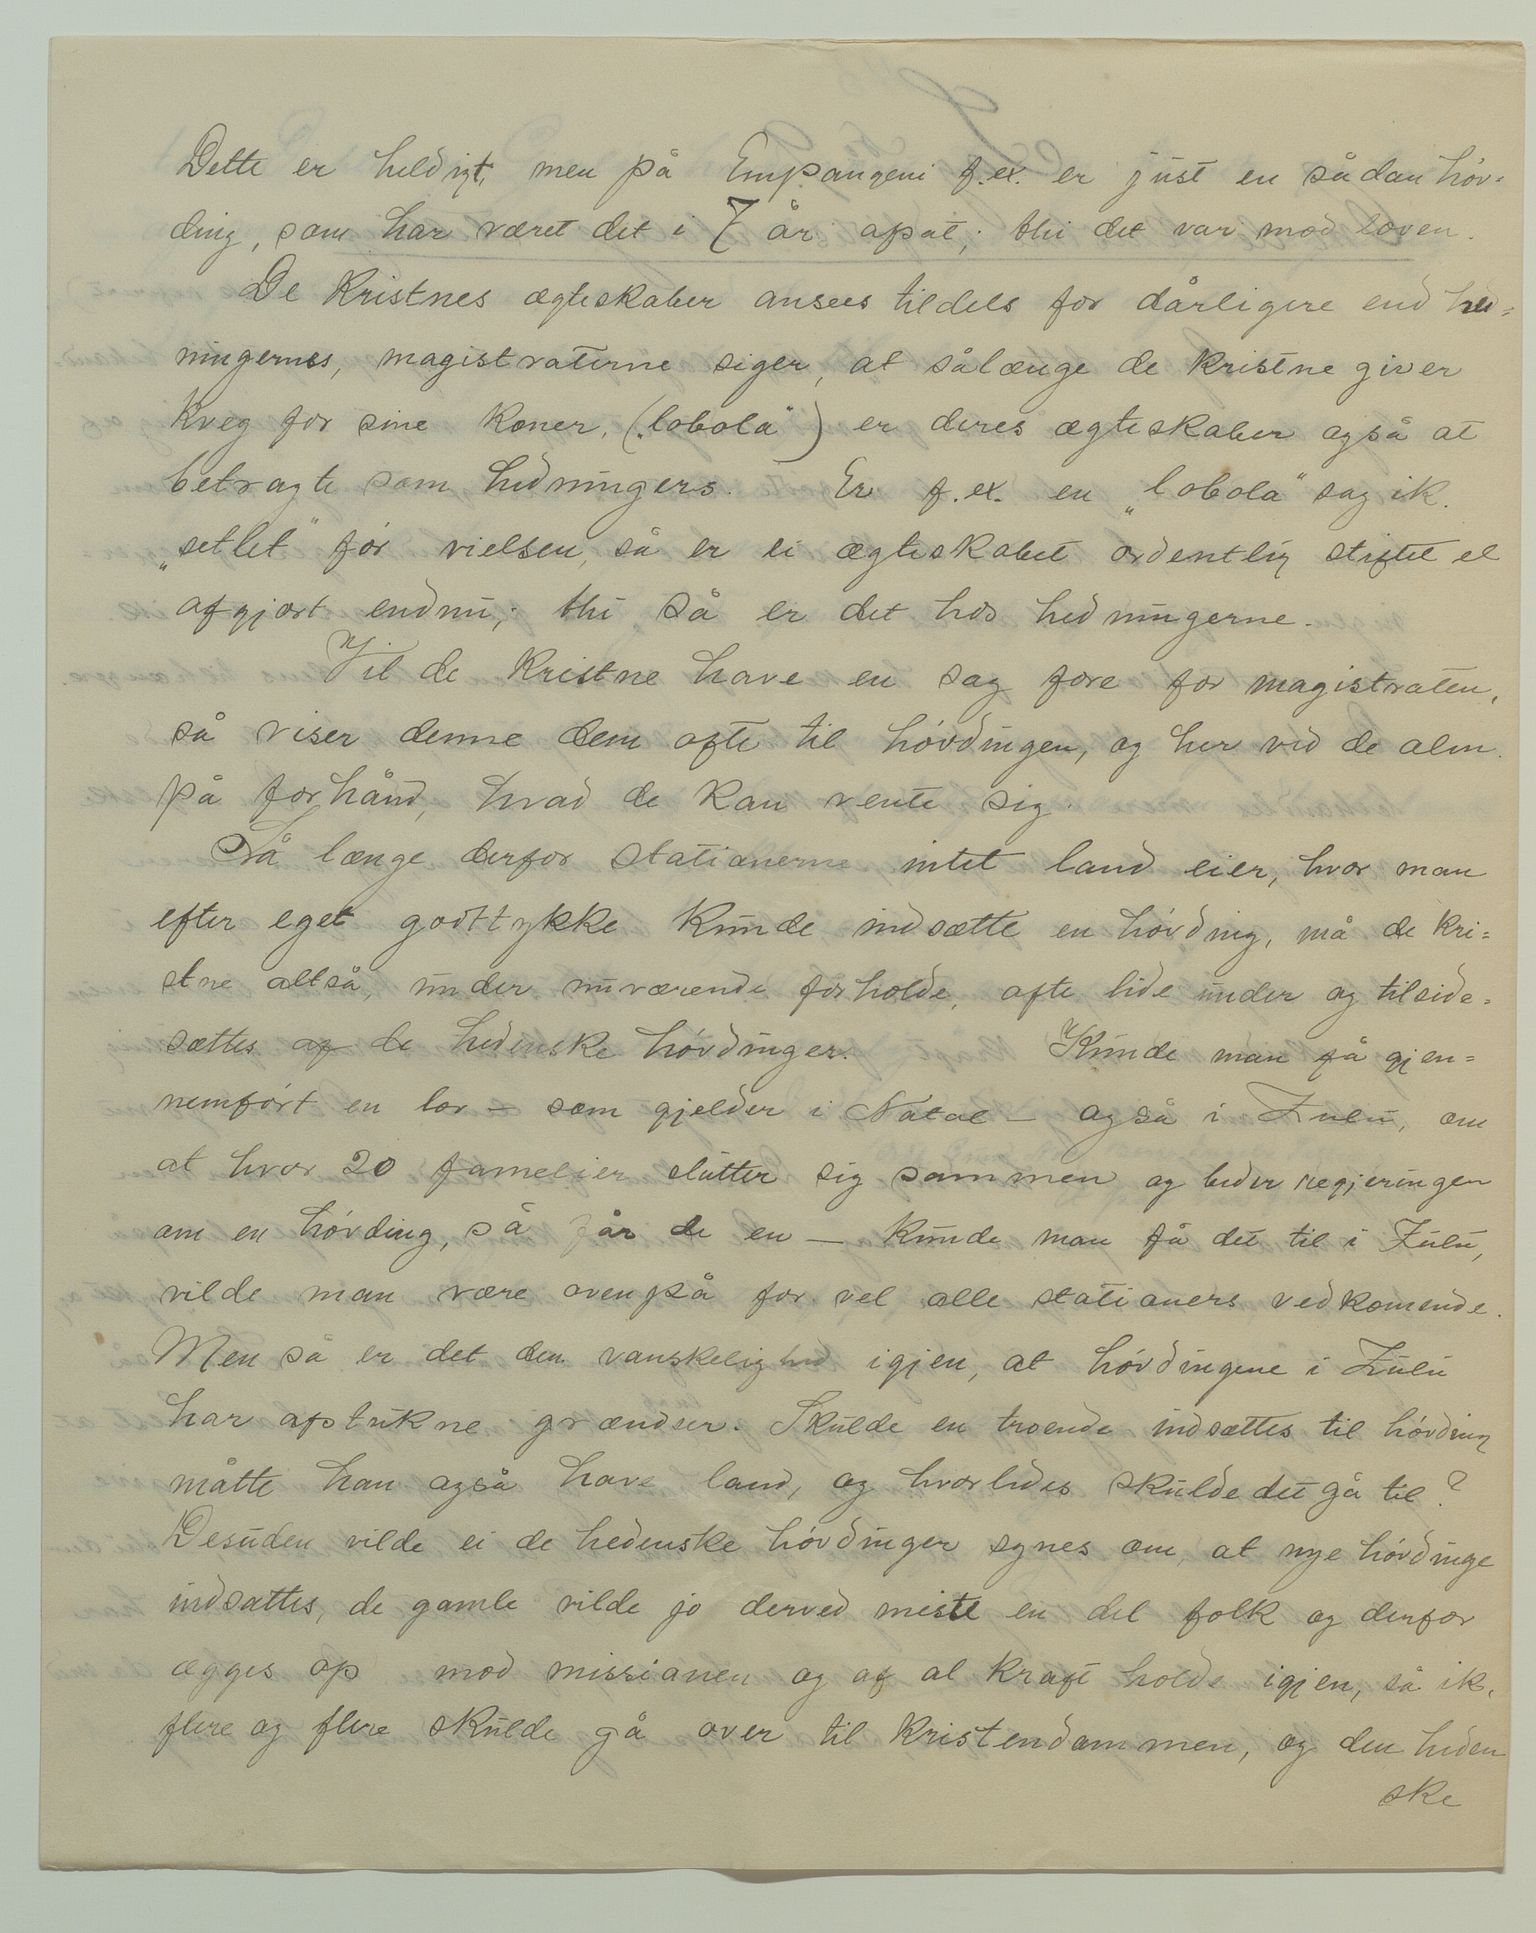 Dette er heldigt, men på Empangeni f.ex. er just en sådan høv=
ding, som har været det i 7 år apat; thi det var mod loven.
De kristnes ægteskaber ansees tildels for dårligere end hed=
ningernes, magistraterne siger, at sålænge de kristne giver
kveg for sine koner, („lobola“) er deres ægteskaber også at
betragte som hedningers. Er f.ex. en „lobola“ sag ik.
„setlet“ før vielsen, så er ei ægteskabet ordentlig stiftet el
afgjort endnu; thi så er det hos hedningerne.
Vil de kristne have en sag fore for magistraten,
så viser denne dem ofte til høvdingen, og her ved de alm.
på forhånd, hvad de kan vente sig.
Så længe derfor stationerne intet land eier, hvor man
efter eget godttykke kunde indsætte en høvding, må de kri=
stne altså, under nuværende forholde, ofte lide under og tilside=
sættes af de hedenske høvdinger. Kunde man få gjen=
nemført en lov – som gjelder i Natal – også i Zulu, om
at hvor 20 famelier slutter sig sammen og beder regjeringen
om en høvding, så får de en – kunde man få det til i Zulu,
vilde man være ovenpå for vel alle stationers vedkomende.
Men så er det den vanskelighed igjen, at høvdingene i Zulu
har afstukne grændser. Skulde en troende indsættes til høvding
måtte han også have land, og hvorledes skulde det gå til?
Desuden vilde ei de hedenske høvdinger synes om, at nye høvdinge
indsattes, de gamle vilde jo derved miste en del folk og derfor
ægges op mod missionen og af al kraft holde igjen, så ik.
flere og flere skulde gå over til kristendommen, og den heden
ske